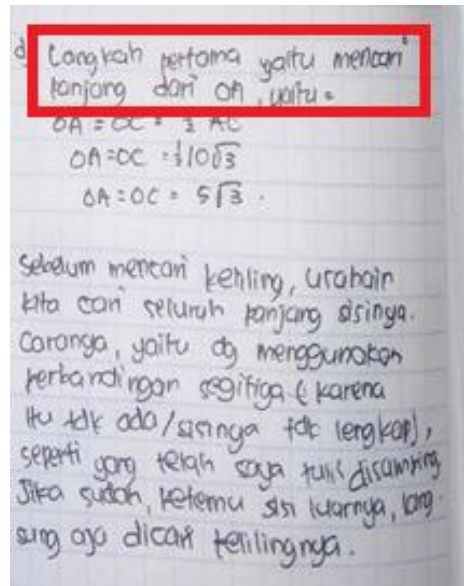 d) Langkah pertama yaitu mencari
panjang dari OA, yaitu =
OA = OC = ½ AC
OA = OC = ½ 10√3
OA = OC = 5√3 .
Sebelum mencari keliling, urahain
kita cari seluruh panjang sisinya.
Caranya, yaitu dg menggunakan
perbandingan segitiga (karena
itu tdk ada/sisinya tdk lengkap),
seperti yang telah saya tulis disamping
Jika sudah, ketemu sisi luarnya, lang-
sung aja dicari kelilingnya.